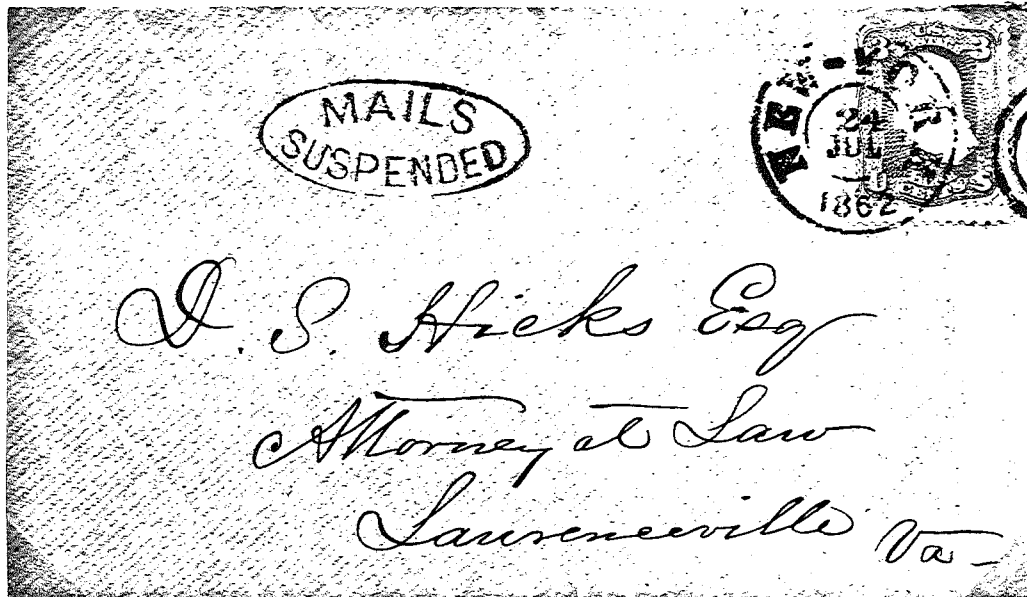 MAILS
SUSPENDED
NEW-YORK
24
JUL
1862
3 3
D. S. Hicks Esq
Attorney at Law
Lawrenceville Va